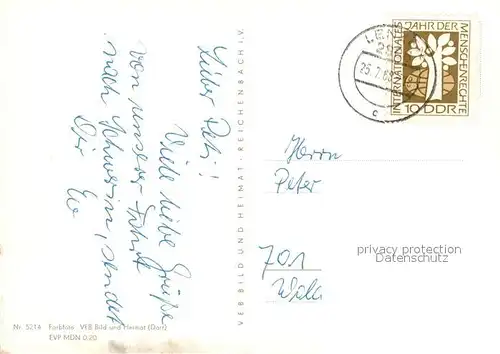 Lieber Peter!
Viele liebe Grüße
von unserer Fahrt
nach Schwerin, sendet
Dir
VEB BILD UND HEIMAT · REICHENBACH i. V.
Nr. 5214 Farbfoto: VEB Bild und Heimat (Dart)
EVP MDN 0.20
INTERNATIONALES
JAHR DER
MENSCHENRECHTE
10 DDR
25.7.68
c
Herrn
Peter
701
privacy protection
Datenschutz